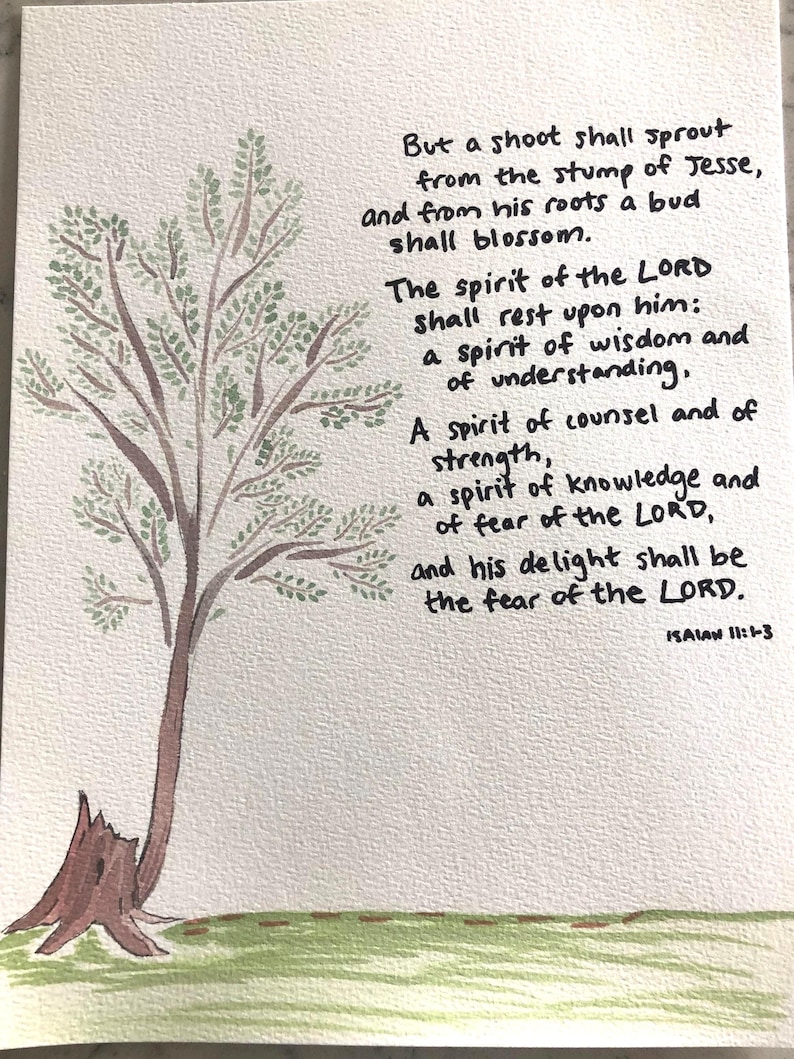 But a shoot shall sprout
from the stump of Jesse,
and from his roots a bud
shall blossom.
The spirit of the LORD
shall rest upon him:
a spirit of wisdom and
of understanding,
A spirit of counsel and of
strength,
a spirit of knowledge and
of fear of the LORD,
and his delight shall be
the fear of the LORD.
ISAIAH 11:1-3